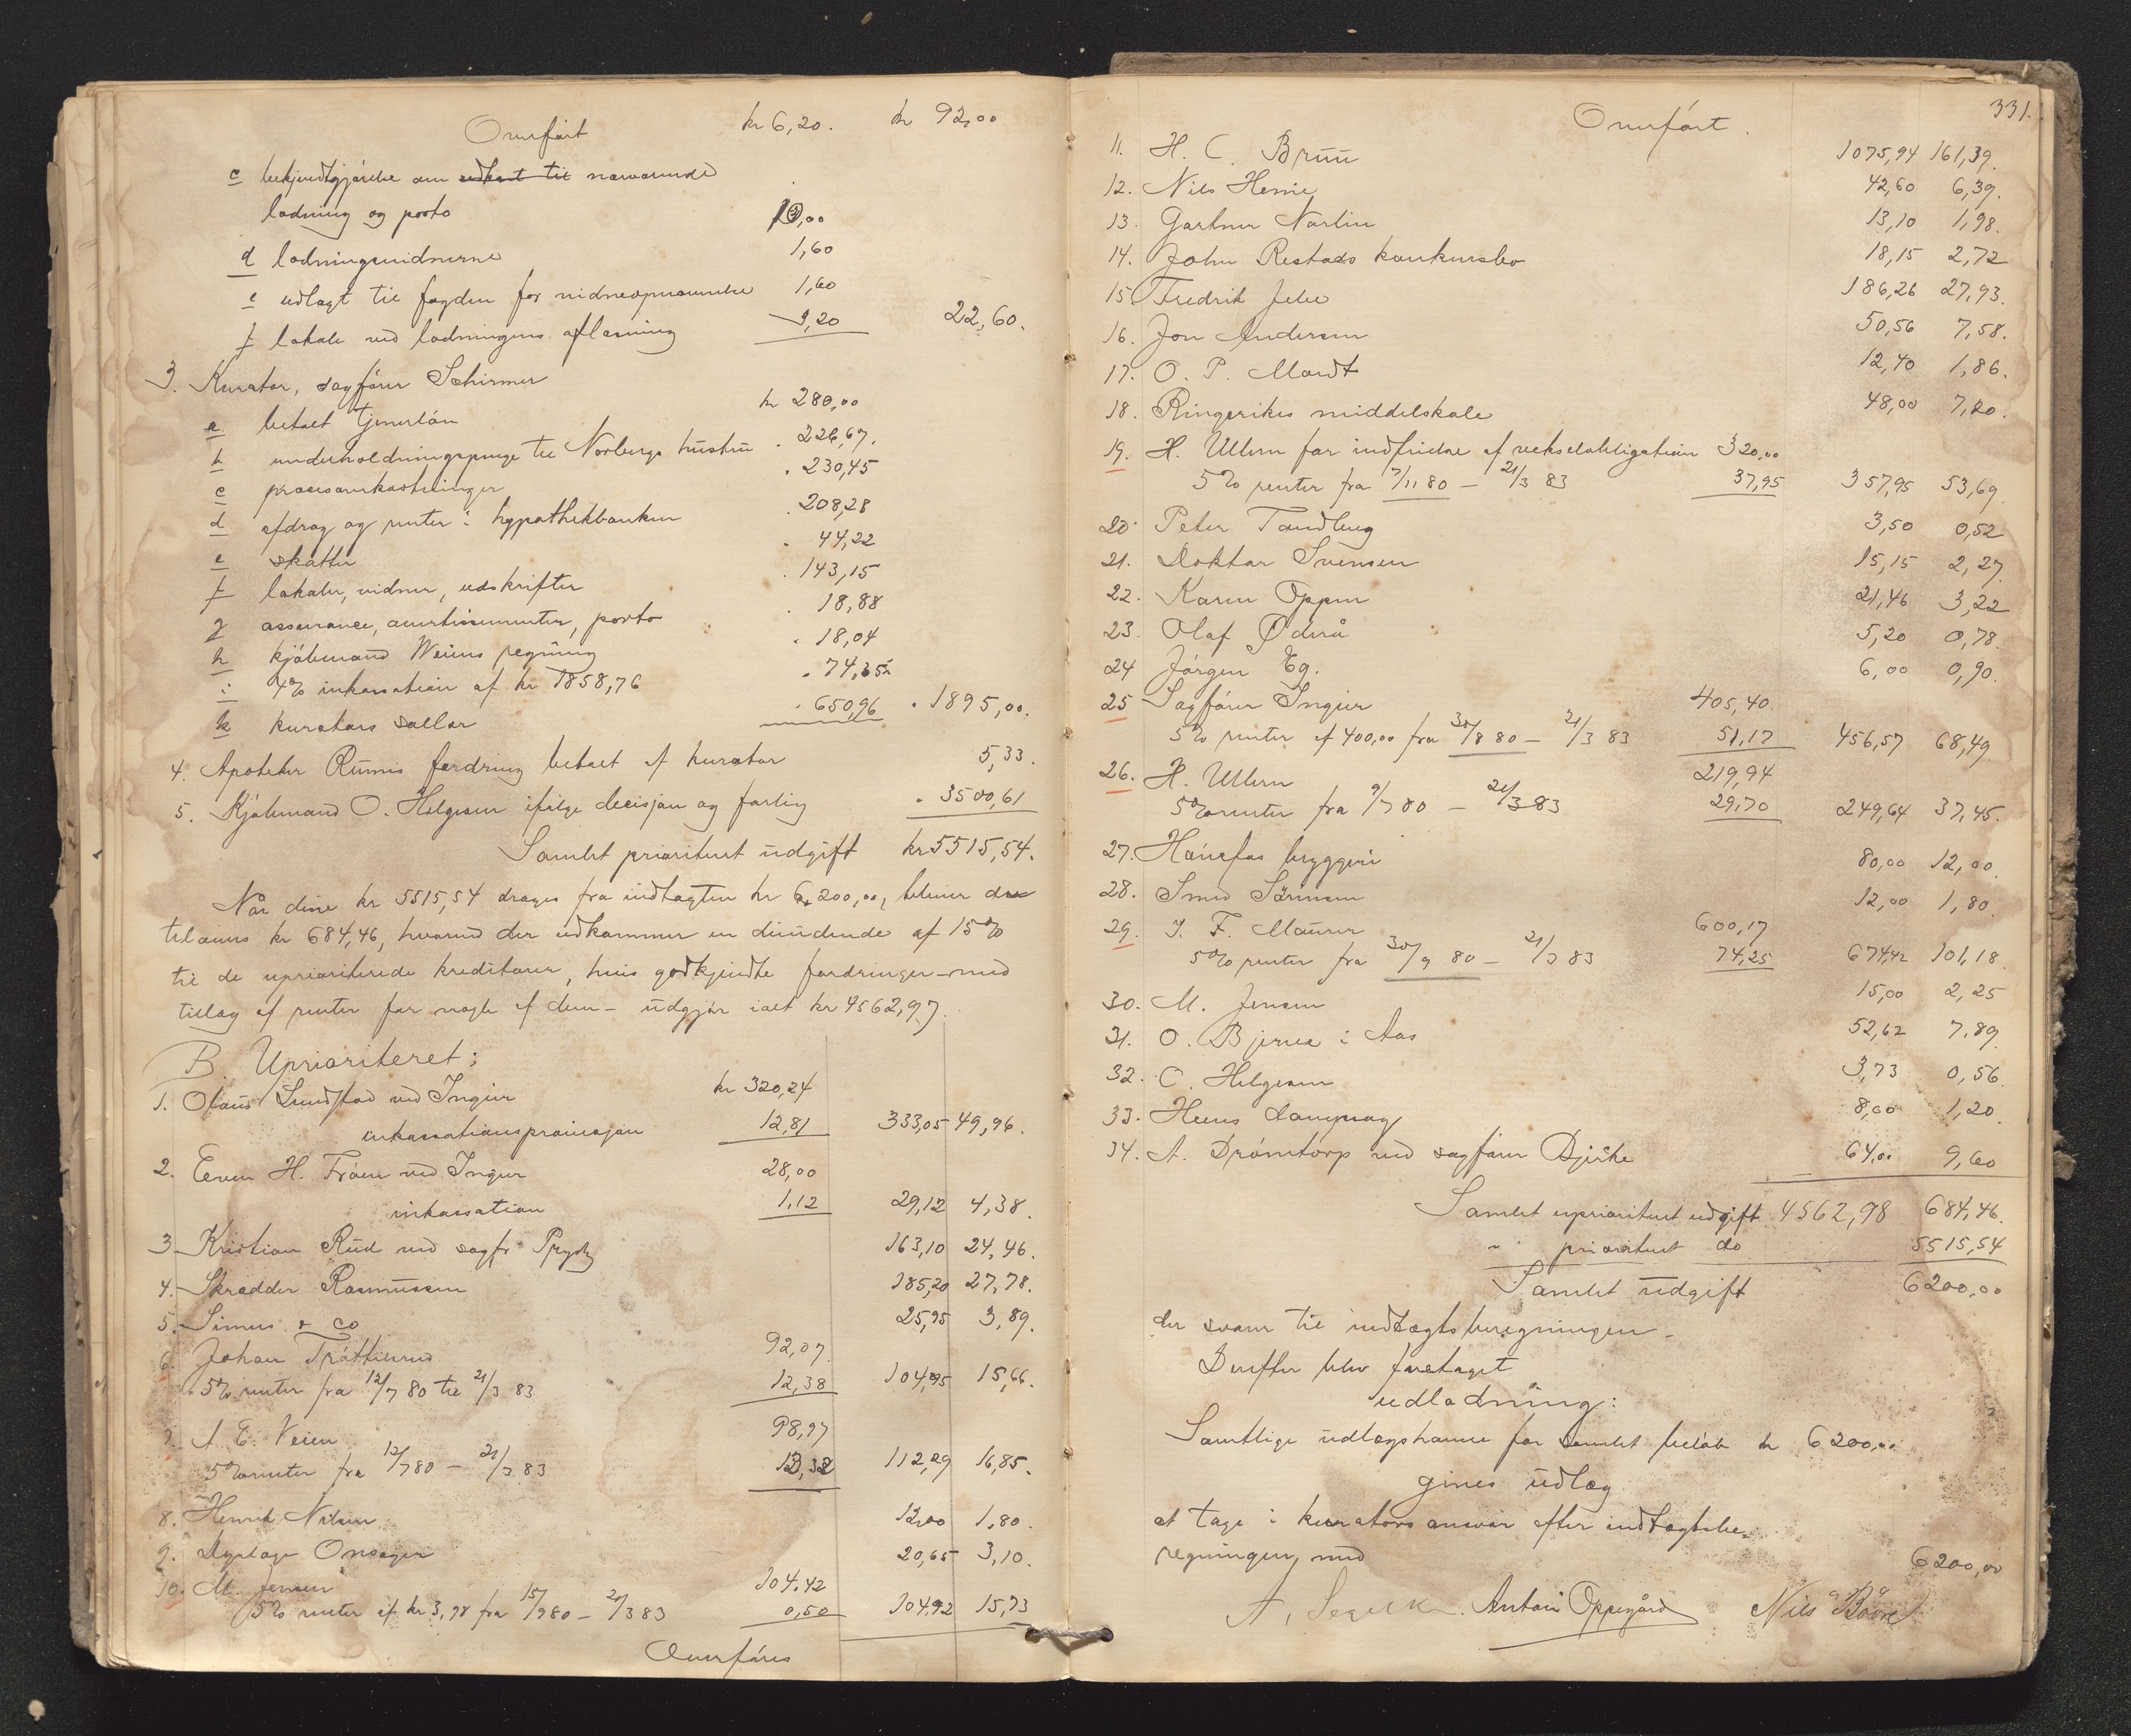 Overført kr 6,20. kr 92,00
c bekjendtgjørelse om udkast til nærværende
lodning og porto 10,00
d lodningsvidnerne 1,60
e udlagt til fogden for vidneopnævnelse 1,60
f lokale ved lodningens aflæsning 3,20 22,60.
3. Kurator, sagfører Schirmer
a betalt tjenerløn kr 280,00
b underholdningspenge til Norbergs hustru . 226,67.
c procesomkostninger . 230,45
d afdrag og renter i hypothekbanken . 208,28
e skatter . 44,22
f lokaler, vidner, udskrifter . 143,15
g assurance, avertissementer, porto . 18,88
h kjøbmand Weiens regning . 18,04
i 4% inkassation af kr 1858,76 . 74,35
k kurators sallær . 650,96 . 1895,00.
4. Apoteker Rumis fordring betalt af kurator 5,33.
5. Kjøbmand O. Helgesen ifølge decisjon og forlig . 3500,61
Samlet prioriteret udgift kr 5515,54.
Når disse kr 5515,54 drages fra indtægten kr 6,200,00, bliver der
tilovers kr 684,46, hvorved der udkommer en dividende af 15%
til de uprioriterede kreditorer, hvis godkjendte fordringer - med
tillæg af renter for nogle af dem - udgjør ialt kr 4562,97.
B. Uprioriteret:
1. Olaus Lundstad ved Ingier kr 320,24
inkassationsprovisjon 12,81 333,05 49,96.
2. Even H. Frøen ved Ingier 28,00
inkassation 1,12 29,12 4,38.
3 Kristian Rud ved sagfr Prydz 163,10 24,46.
4. Skrædder Rasmussen 185,20 27,78.
5. Simers & Co 25,95 3,89.
6. Johan Trøttelsrud 92,07
5% renter fra 12/7 80 til 21/3 83 12,38 104,95 15,66.
7. A. E. Veien 98,97
5% renter fra 12/7 80 - 21/3 83 13,32 112,29 16,85.
8. Henrik Nilsen 12,00 1,80.
9. Dyrlæge Onsager 20,65 3,10.
10. M. Jensen 104,42
5% renter af kr 3,98 fra 15/9 80 - 21/3 83 0,50 104,92 15,73
Overføres
331.
Overført.
11. H. C. Bruu 1075,94 161,39.
12. Nils Henie 42,60 6,39.
13. Gartner Narlin 13,10 1,98.
14. John Restads konkursbo 18,15 2,72
15. Fredrik Jelse 186,26 27,93.
16. Jon Andersen 50,56 7,58.
17. O. P. Mordt 12,40 1,86.
18. Ringerikes middelskole 48,00 7,20.
19. H. Ullern for indfrielse af vekselobligation 320,00
5% renter fra 7/11 80 - 21/3 83 37,95 357,95 53,69.
20. Peter Tandberg 3,50 0,52
21. Doktor Svensen 15,15 2,27.
22. Karen Oppen 21,46 3,22
23. Olaf Øderå 5,20 0,78.
24 Jørgen Eg. 6,00 0,90.
25 Sagfører Ingier 405,40.
5% renter af 400,00 fra 30/8 80 - 21/3 83 51,17 456,57 68,49.
26. H. Ullern 219,94
5% renter fra 9/7 80 - 21/3 83 29,70 249,64 37,45.
27. Hønefos bryggeri 80,00 12,00.
28. Smed Sørensen 12,00 1,80.
29. J. F. Maurer 600,17
5% renter fra 30/9 80 - 21/3 83 74,25 674,42 101,18.
30. M. Jensen 15,00 2,25
31. O. Bjerke i Aas 52,62 7,89
32. O. Helgesen 3,73 0,56.
33. Heens dampsag 8,00 1,20.
34. A. Drømtorp ved sagfører Bjirke 64,00 9,60
Samlet uprioriteret udgift 4562,98 684,46.
" prioriteret do 5515,54
Samlet udgift 6200,00
der svarer til indtægtsberegningen.
Derefter blev foretaget
udlodning:
Samtlige udlægshavere for samlet beløb kr 6200,00
gives udlæg
at tage i kurators ansvar efter indtægtsbe-
regningen med 6200,00
Anton Oppegård Nils Båvre